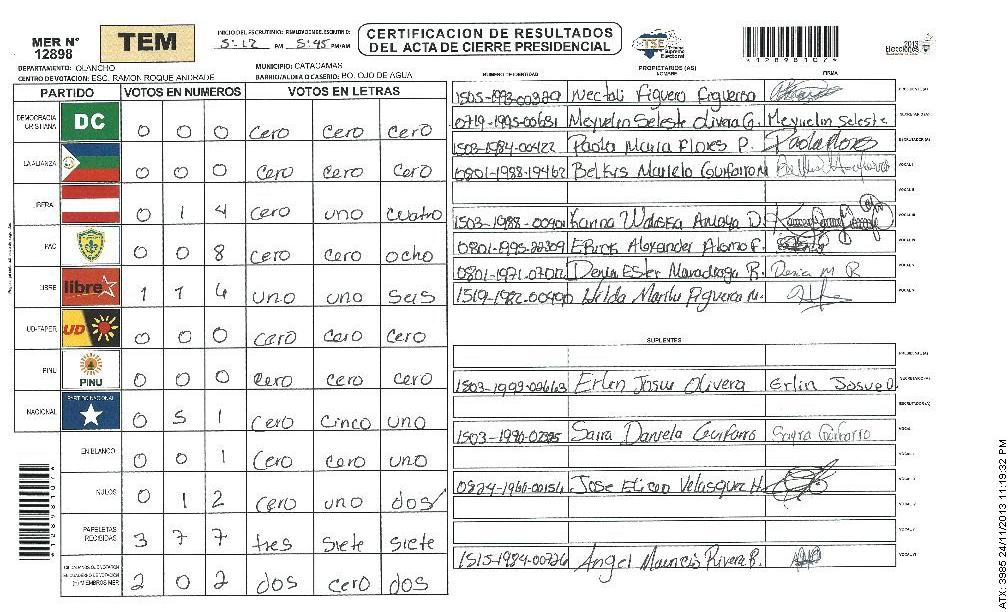 MER N° 12898
TEM
INICIO DEL ESCRUTINIO: 5:12 PM
5:45 PM/AM
CERTIFICACION DE RESULTADOS
DEL ACTA DE CIERRE PRESIDENCIAL
TSE
*12898107*
2013
Elecciones
DEPARTAMENTO: OLANCHO
MUNICIPIO: CATACAMAS
CENTRO DE VOTACION: ESC. RAMON ROQUE ANDRADE
BARRIO/ALDEA O CASERIO: BO. OJO DE AGUA
NUMERO DE IDENTIDAD
PROPIETARIOS (AS)
NOMBRE
FIRMA
PARTIDO VOTOS EN NUMEROS VOTOS EN LETRAS
DEMOCRACIA CRISTIANA DC 0 0 0 cero cero cero
LA ALIANZA 0 0 0 cero cero cero
LIBERAL 0 1 4 cero uno cuatro
PAC 0 0 8 cero cero ocho
LIBRE libre 1 1 6 uno uno seis
UD-FAPER UD 0 0 0 cero cero cero
PINU PINU 0 0 0 cero cero cero
NACIONAL PARTIDO NACIONAL 0 5 1 cero cinco uno
EN BLANCO 0 0 1 cero cero uno
NULOS 0 1 2 cero uno dos
PAPELETAS RECIBIDAS 3 7 7 tres siete siete
2 0 2 dos cero dos
Nectali Figueroa Figueroa
0719-1995-00681 Meyvelin Seleste Olivera G. Meyvelin Seleste
1503-1984-00422 Paola Maria Flores P. Paola Flores
0801-1988-19462
Karina Waleska
0801-1995-22309 Alexander
0801-1971-07012 Denia Ester Denia M R
1519-1982-00490 Hilda
SUPLENTES
1503-1992-02663 Erlin Josue Olivera Erlin Josue O.
Saira Daniela Guifarro Sayra Guifarro
0824-1960-00154 Jose Velasquez H.
1515-1984-00726 Angel Mauricio Rivera B.
*12898107*
ATX: 3985 24/11/2013 11:19:32 PM